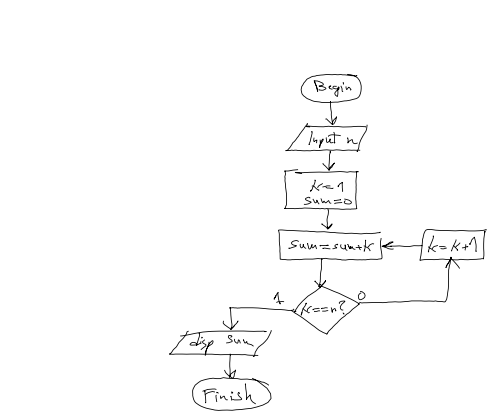 Begin
Input n
k=1
sum=0
sum=sum+k
k=k+1
1
k==n?
0
disp sum
Finish